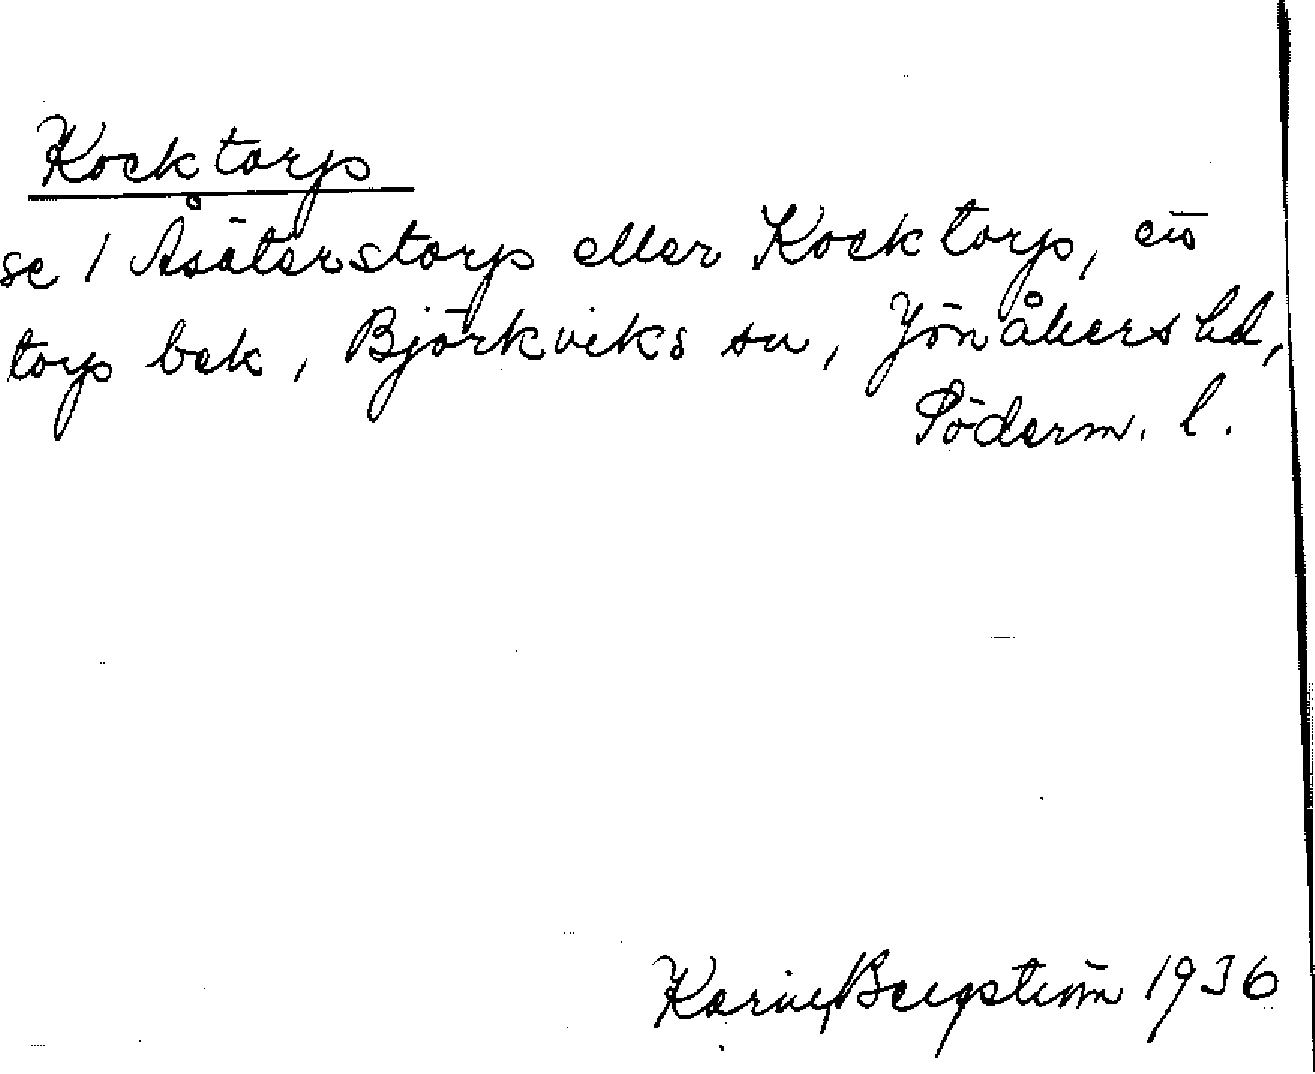 Kocktorp
se / Åsäterstorp eller Kocktorp,
torp bek, Björkviks sn, Jönåkers hd,
Söderm. l.
Karin Bergström 1936